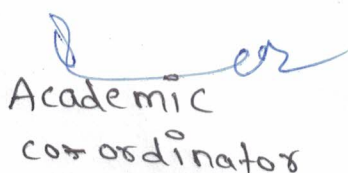 Academic
co-ordinator